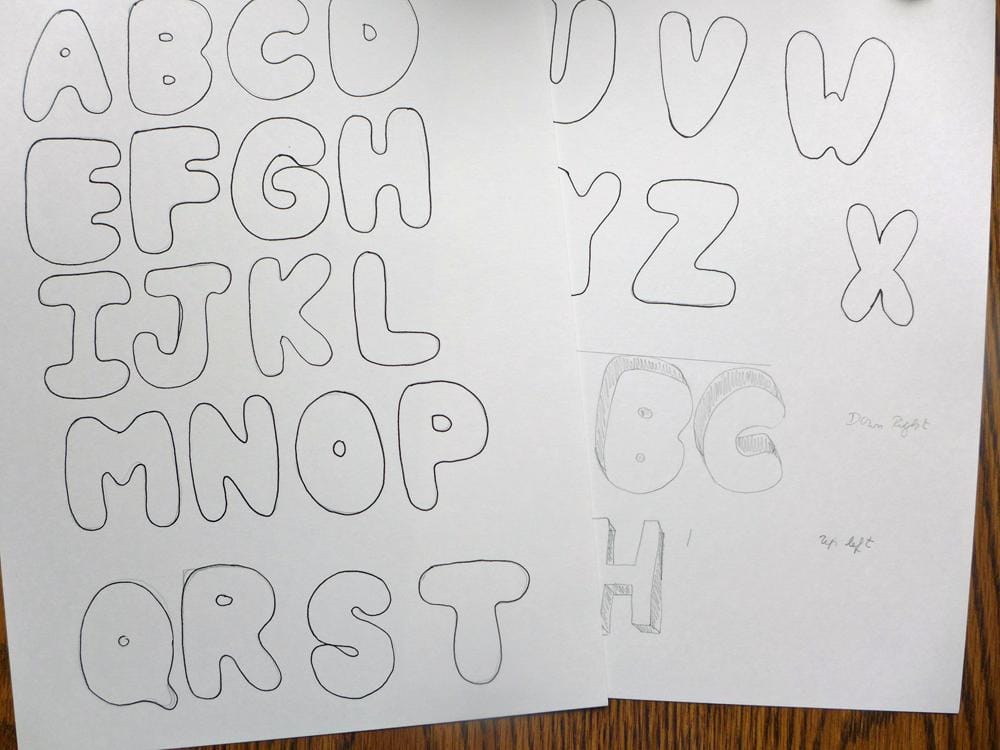 ABCD
EFGH
IJKL
MNOP
QRST
UVW
YZ X
BC
Down Right
H
up left